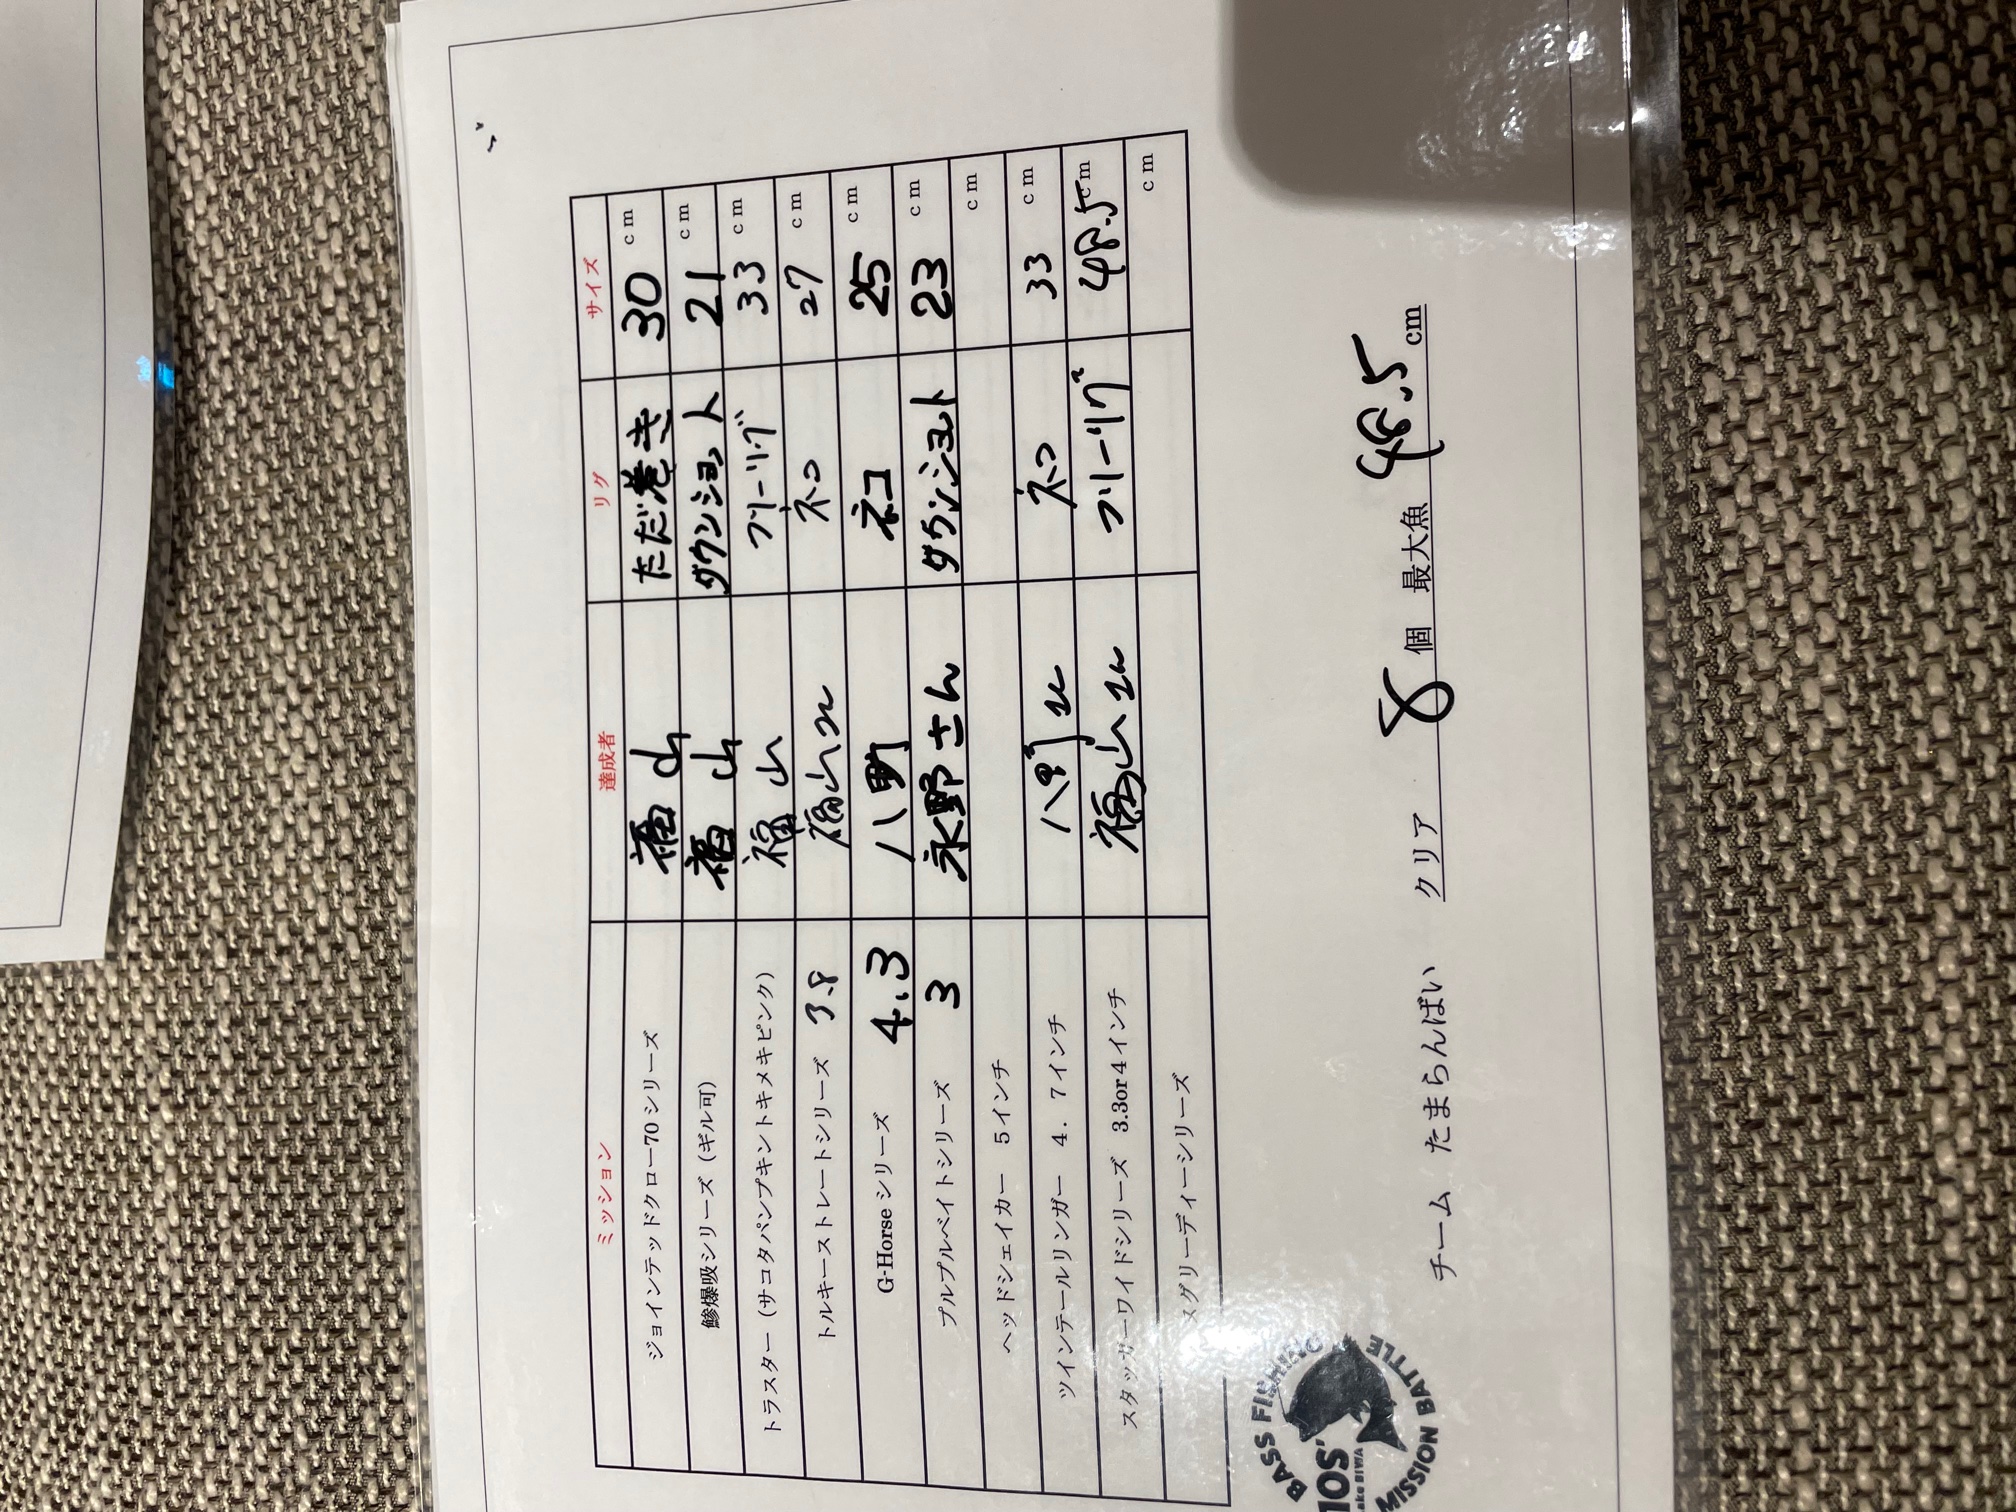 ミッション 達成者 リグ サイズ
ジョインテッドクロー70シリーズ 福山 ただ巻き 30 cm
鯵爆吸シリーズ（ギル可） 福山 ダウンショット 21 cm
トラスター（サコタパンプキントキメキピンク） 福山 フリーリグ 33 cm
トルキーストレートシリーズ 3.8 福山 ネコ 27 cm
G-Horseシリーズ 4.3 八野 ネコ 25 cm
プルプルベイトシリーズ 3 永野さん ダウンショット 23 cm
ヘッドシェイカー 5インチ cm
ツインテールリンガー 4．7インチ ネコ 33 cm
スタッガーワイドシリーズ 3.3or4インチ 福山 フリーリグ 48.5 cm
スグリーディーシリーズ cm
チーム たまらんばい クリア 8 個 最大魚 48.5 cm
BASS FISHING
10S'
Lake BIWA
MISSION BATTLE